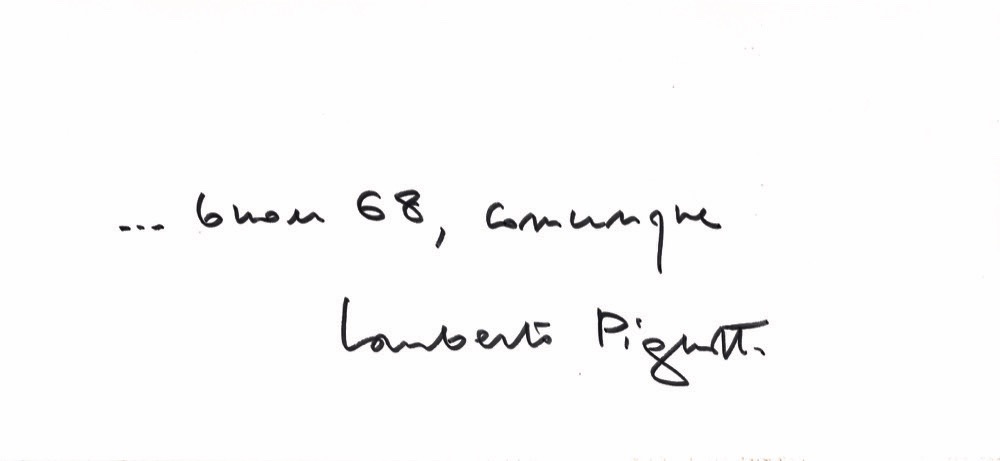 ... buon 68, comunque
Lamberto Pignotti